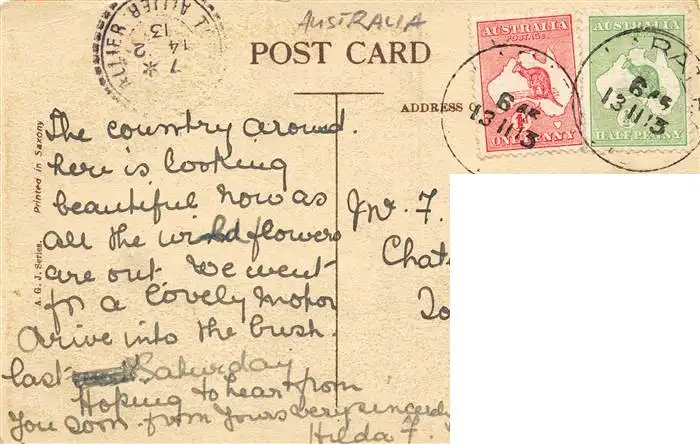 AUSTRALIA
POST CARD
ALLIER
7 *
14 2
13
AUSTRALIA
POSTAGE
ONE PENNY
AUSTRALIA
HALF PENNY
6 AP
13 11 13
6 AP
13 11 13
ADDRESS O
Printed in Saxony
A. G. J. Series.
The country around
here is looking
beautiful now as
all the wild flowers
are out We went
for a lovely motor
drive into the bush.
last Saturday
Hoping to hear from
you soon. from yours very sincerely
Hilda F.
F.
Chat